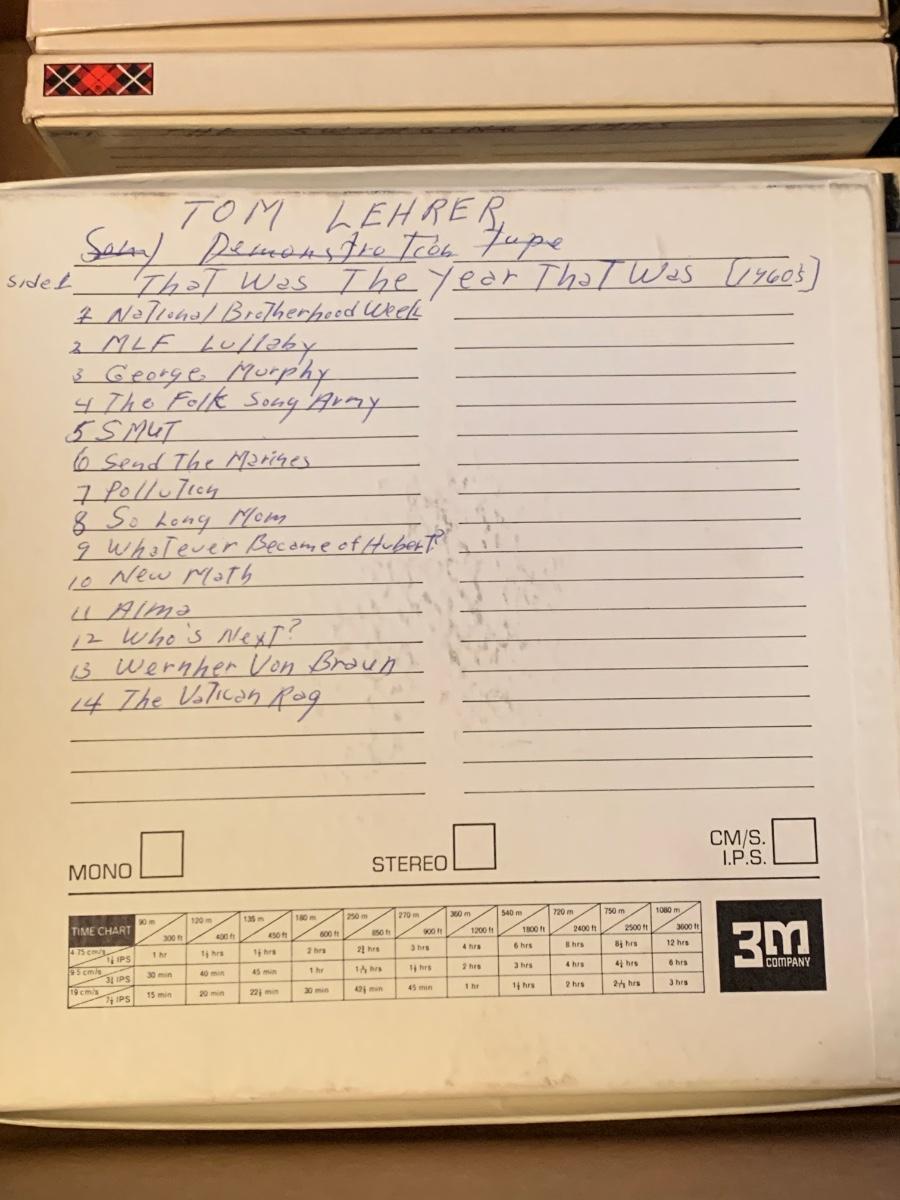 TOM LEHRER
Demonstration tape
Side 1 That Was The Year That Was [1960's]
1 National Brotherhood Week
2 MLF Lullaby
3 George Murphy
4 The Folk Song Army
5 SMUT
6 Send The Marines
7 Pollution
8 So Long Mom
9 Whatever Became of Hubert?
10 New Math
11 Alma
12 Who's Next?
13 Wernher Von Braun
14 The Vatican Rag
MONO STEREO CM/S.
I.P.S.
TIME CHART 90 m 300 ft 120 m 400 ft 135 m 450 ft 180 m 600 ft 250 m 850 ft 270 m 900 ft 360 m 1200 ft 540 m 1800 ft 720 m 2400 ft 750 m 2500 ft 1080 m 3600 ft
4.75 cm/s 1⅞ IPS 1 hr 1⅓ hrs 1½ hrs 2 hrs 2¾ hrs 3 hrs 4 hrs 6 hrs 8 hrs 8½ hrs 12 hrs
9.5 cm/s 3¾ IPS 30 min 40 min 45 min 1 hr 1½ hrs 2 hrs 3 hrs 4 hrs 4¼ hrs 6 hrs
19 cm/s 7½ IPS 15 min 20 min 22½ min 30 min 42½ min 45 min 1 hr 1½ hrs 2 hrs 3 hrs
3M
COMPANY